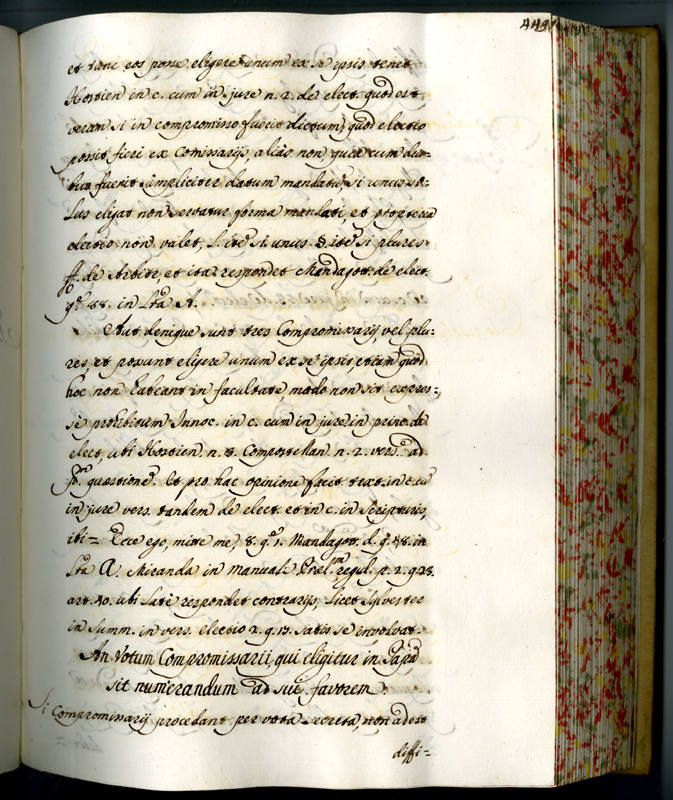 et tunc eos posse eligere unum ex se ipsis tenet
Hostien in c. cum in jure n. 2. de elect. quod est
verum si in compromisso fuerit dictum, quod electio
possit fieri ex Comissarijs, alias non quia cum duo=
bus fuerit simpliciter datum mandatũ, si unus so=
lus eligat non servatur forma mandati, et propterea
electio non valet, l. itẽ si unus §. itẽ si plures
ff. de Arbitr. et ita respondet Mandagott. de elect.
in Lrã A.
Aut denique sunt tres Compromissarij, vel plu=
res, et possunt eligere unum ex se ipsis, etiam quod
hoc non habeant in facultate, modo non sit expres=
se prohibitum Innoc. in c. cum in jure in princ. de
elect., ubi Hostien. n. 3. Compostellan. n. 2. vers. ad
quæstionẽ. Et pro hac opinione facit text. in c. cũ
in jure vers. tandem de elect. et in c. in scripturis,
ibi= Ecce ego, mitte me, 8. q. 1. Mandagott. d. q. 48. in
Lrã A. Miranda in Manuali Præl. regul. p. 2. q. 23.
art. 10. ubi late respondet contrarijs, licet Sylvester
in summ. in vers. electio 2. q. 13. satis se involvat.
An Votum Compromissarii, qui eligitur in Papã
sit numerandum ad sui favorem.
Si Compromissarij procedant per vota secreta, non adest
diffi=